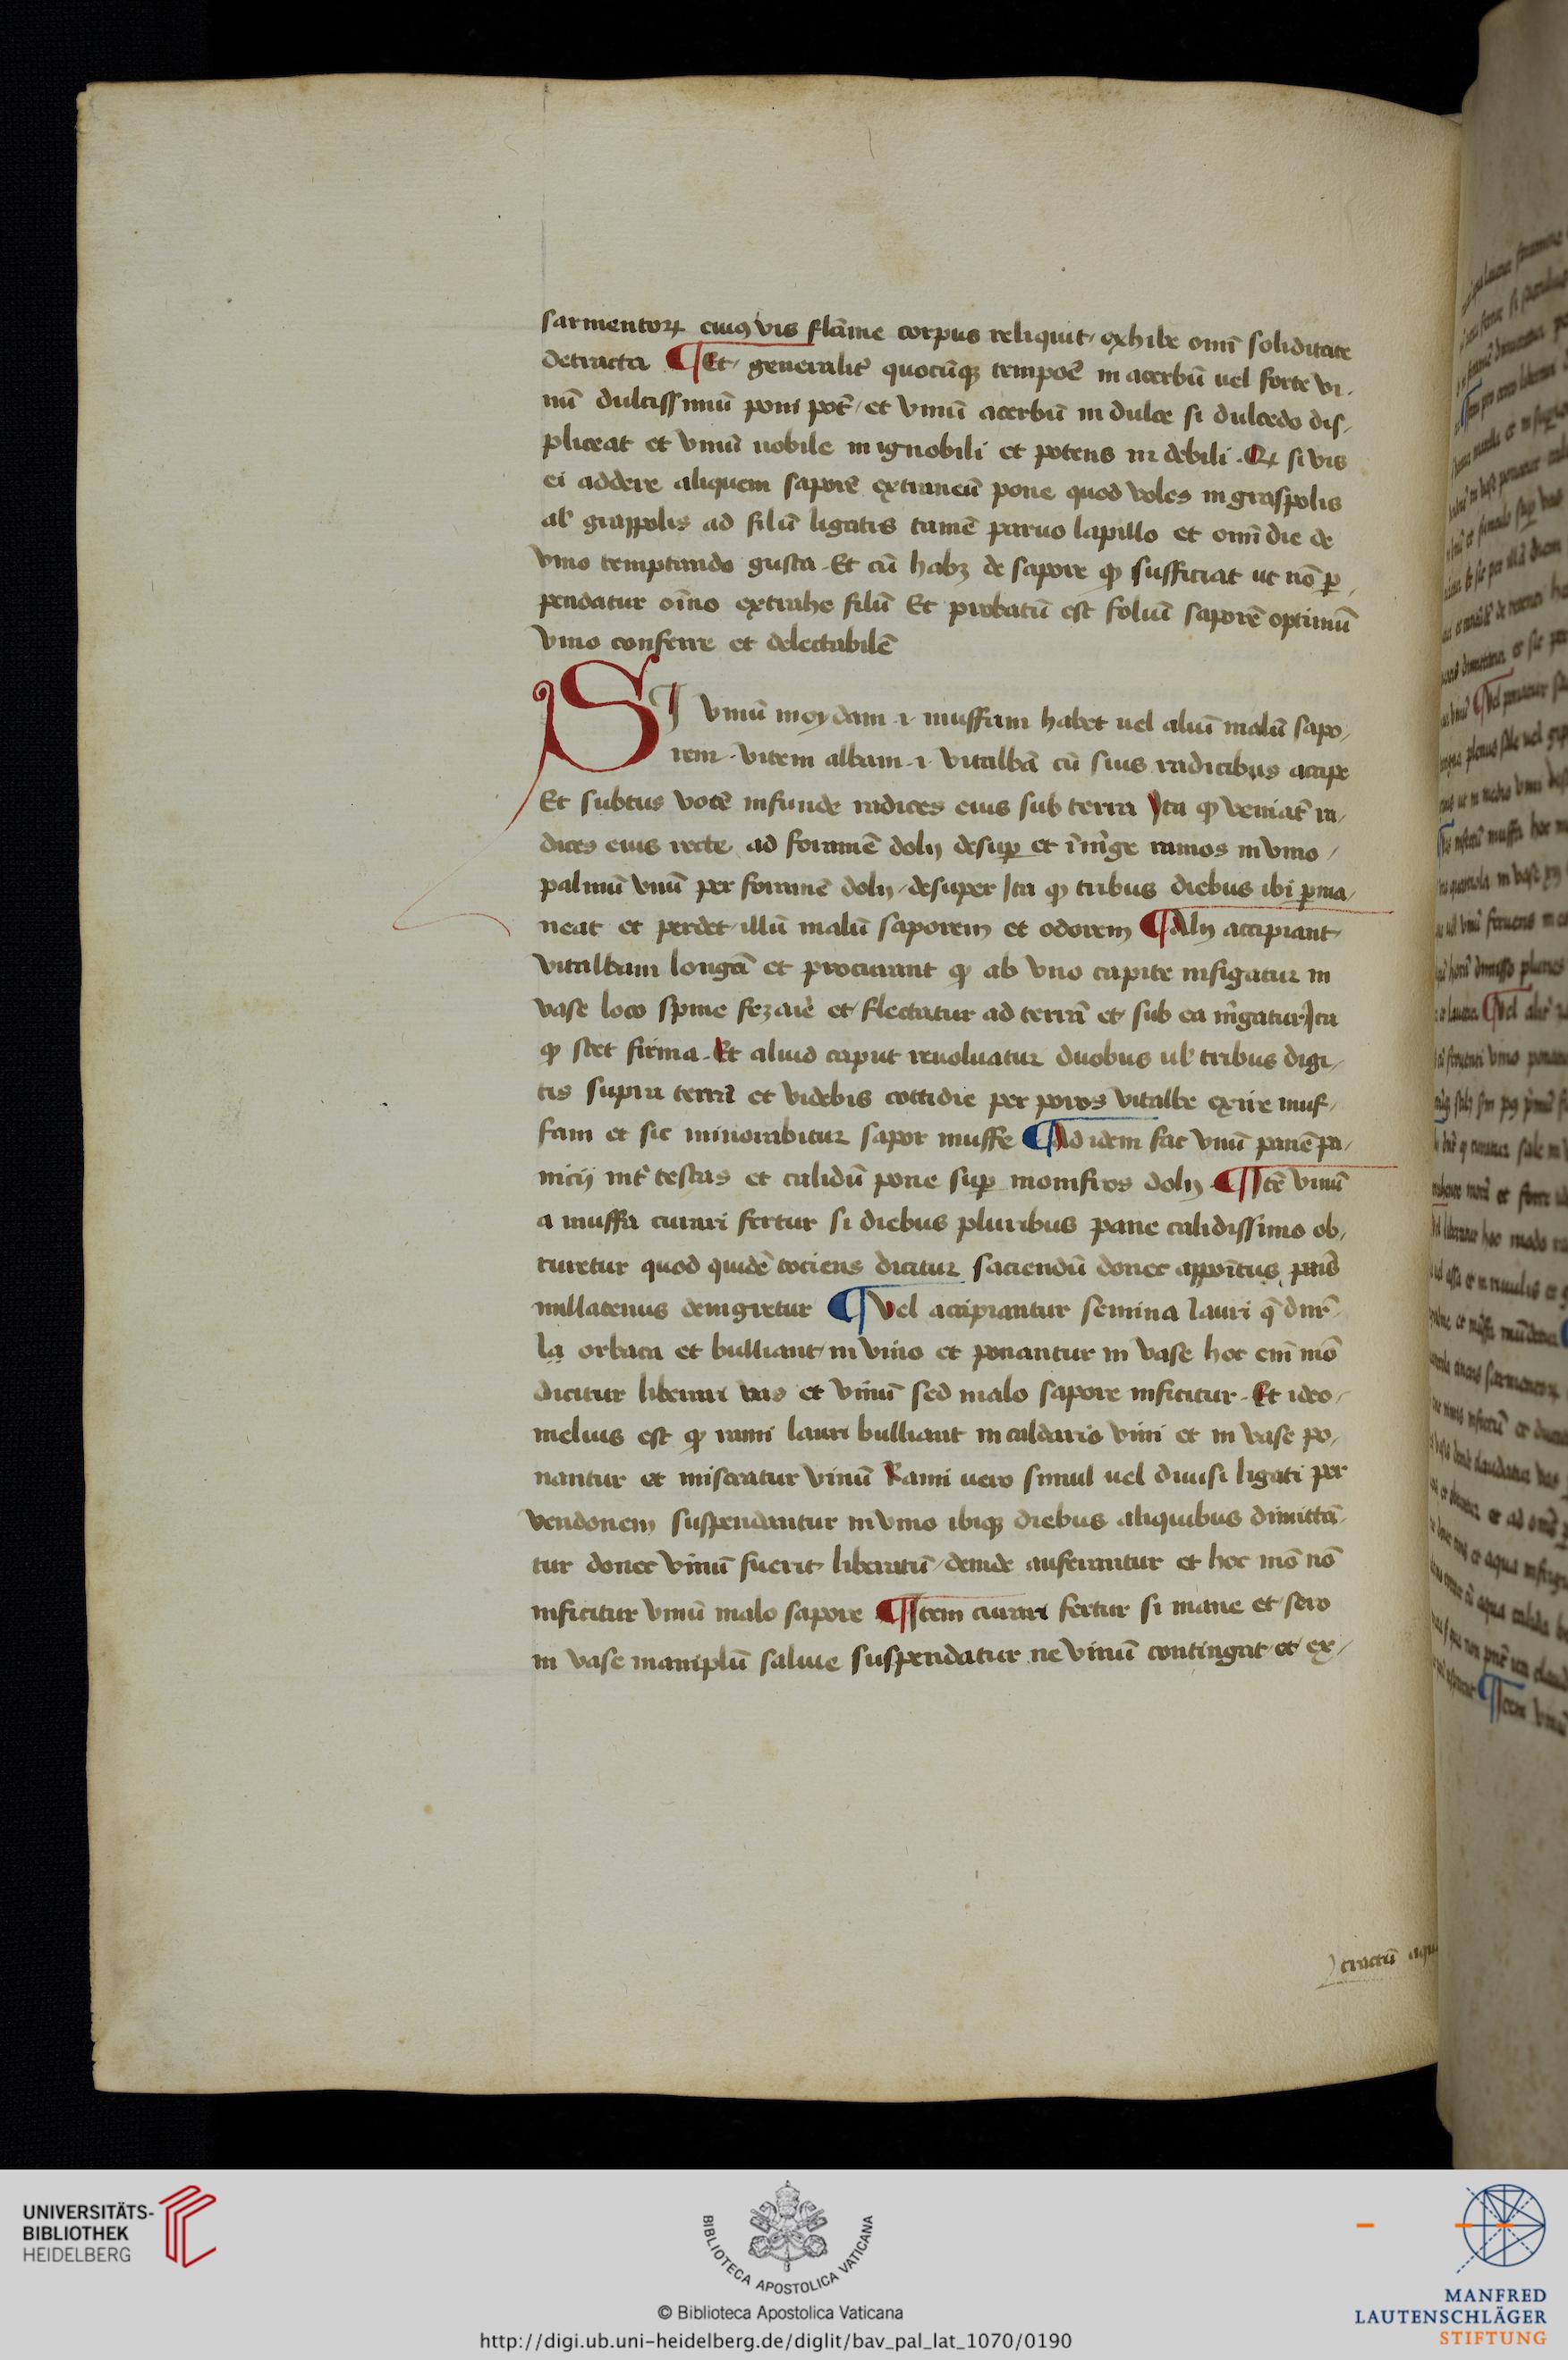 sarmentoꝝ cuiꝯ vis flāme corpus reliquit exhibe om̄i soliditate
detracta ¶ Et generalit̄ quocūqꝫ tempoē in acerbū uel forte vi-
nū dulcissimū poni pōt et vinū acerbū in dulce si dulcedo dis-
pliceat et vinū nobile in ignobili et potens in debili . Qꝝ si vis
ei addere aliquem saporē extraneū pone quod voles in graspolis
al' grappolis ad filū ligatis tamē paruo lapillo et om̄i die de
vino temptando gusta . Et cū habꝫ de sapore qꝫ sufficiat ut nō ꝑ-
pendatur oīno extrahe filū Et probatū est foliū saporē optimū
vino conferre et delectabilē
SI vinū moydam .i. muffam habet uel aliū malū sapo-
rem . vitem albam .i. vitalbā cū suis radicibus accipe
Et subtus votē infunde radices eius sub terra Ita qꝫ veniāt ra-
dices eius recte ad foramē dolij desuꝑ et īmͥge ramos in vino
palmū vnū per foramē dolij desuper Ita qꝫ tribus diebus ibi ꝑma-
neat et perdet illū malū saporem et odorem ¶ Alij accipiant
vitalbam longā et procurant qꝫ ab vno capite infigatur in
vase loco spine fezarie et flectatur ad terrā et sub ea mͥgatur Ita
qꝫ stet firma . Et aliud caput reuoluatur duobus ul' tribus digi-
tis supra terrā et videbis cottidie per poros vitalbe exire muf-
fam et sic minorabitur sapor muffe ¶ Ad idem fac vnū panē pa-
nicij int̄ testas et calidū pone suꝑ momfiros dolij ¶ Itē vinū
a muffa curari fertur si diebus pluribus pane calidissimo ob-
turetur quod quidē tociens dicitur faciendū donec apportus panis
nullatenus denigretur ¶ Vel accipiantur semina lauri q̄ dnr̄
la orbaca et bulliant in vino et ponantur in vase hoc em̄ mō
dicitur liberari vas et vinū sed malo sapore inficitur . Et ideo
melius est qꝫ rami lauri bulliant in caldaris vini et in vase po-
nantur et misceatur vinū Rami uero simul uel diuisi ligati per
vendonem suspendantur in vino ibiqꝫ diebus aliquibus dimittā-
tur donec vinū fuerit liberatū deinde auferantur et hoc mō nō
inficitur vinū malo sapore ¶ Item curari fertur si mane et sero
in vase maniplū saluie suspendatur ne vinū contingat et ex-
tractū aqua
UNIVERSITÄTS-
BIBLIOTHEK
HEIDELBERG
BIBLIOTECA APOSTOLICA VATICANA
© Biblioteca Apostolica Vaticana
http://digi.ub.uni-heidelberg.de/diglit/bav_pal_lat_1070/0190
MANFRED
LAUTENSCHLÄGER
STIFTUNG